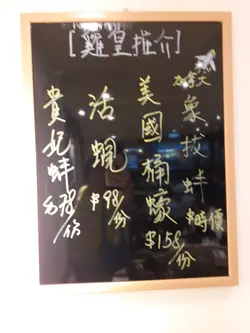 [雞皇推介]
加拿大
象拔蚌
$時價
美國桶蠔
$158/份
活蜆
$98/份
貴妃蚌
$78/份